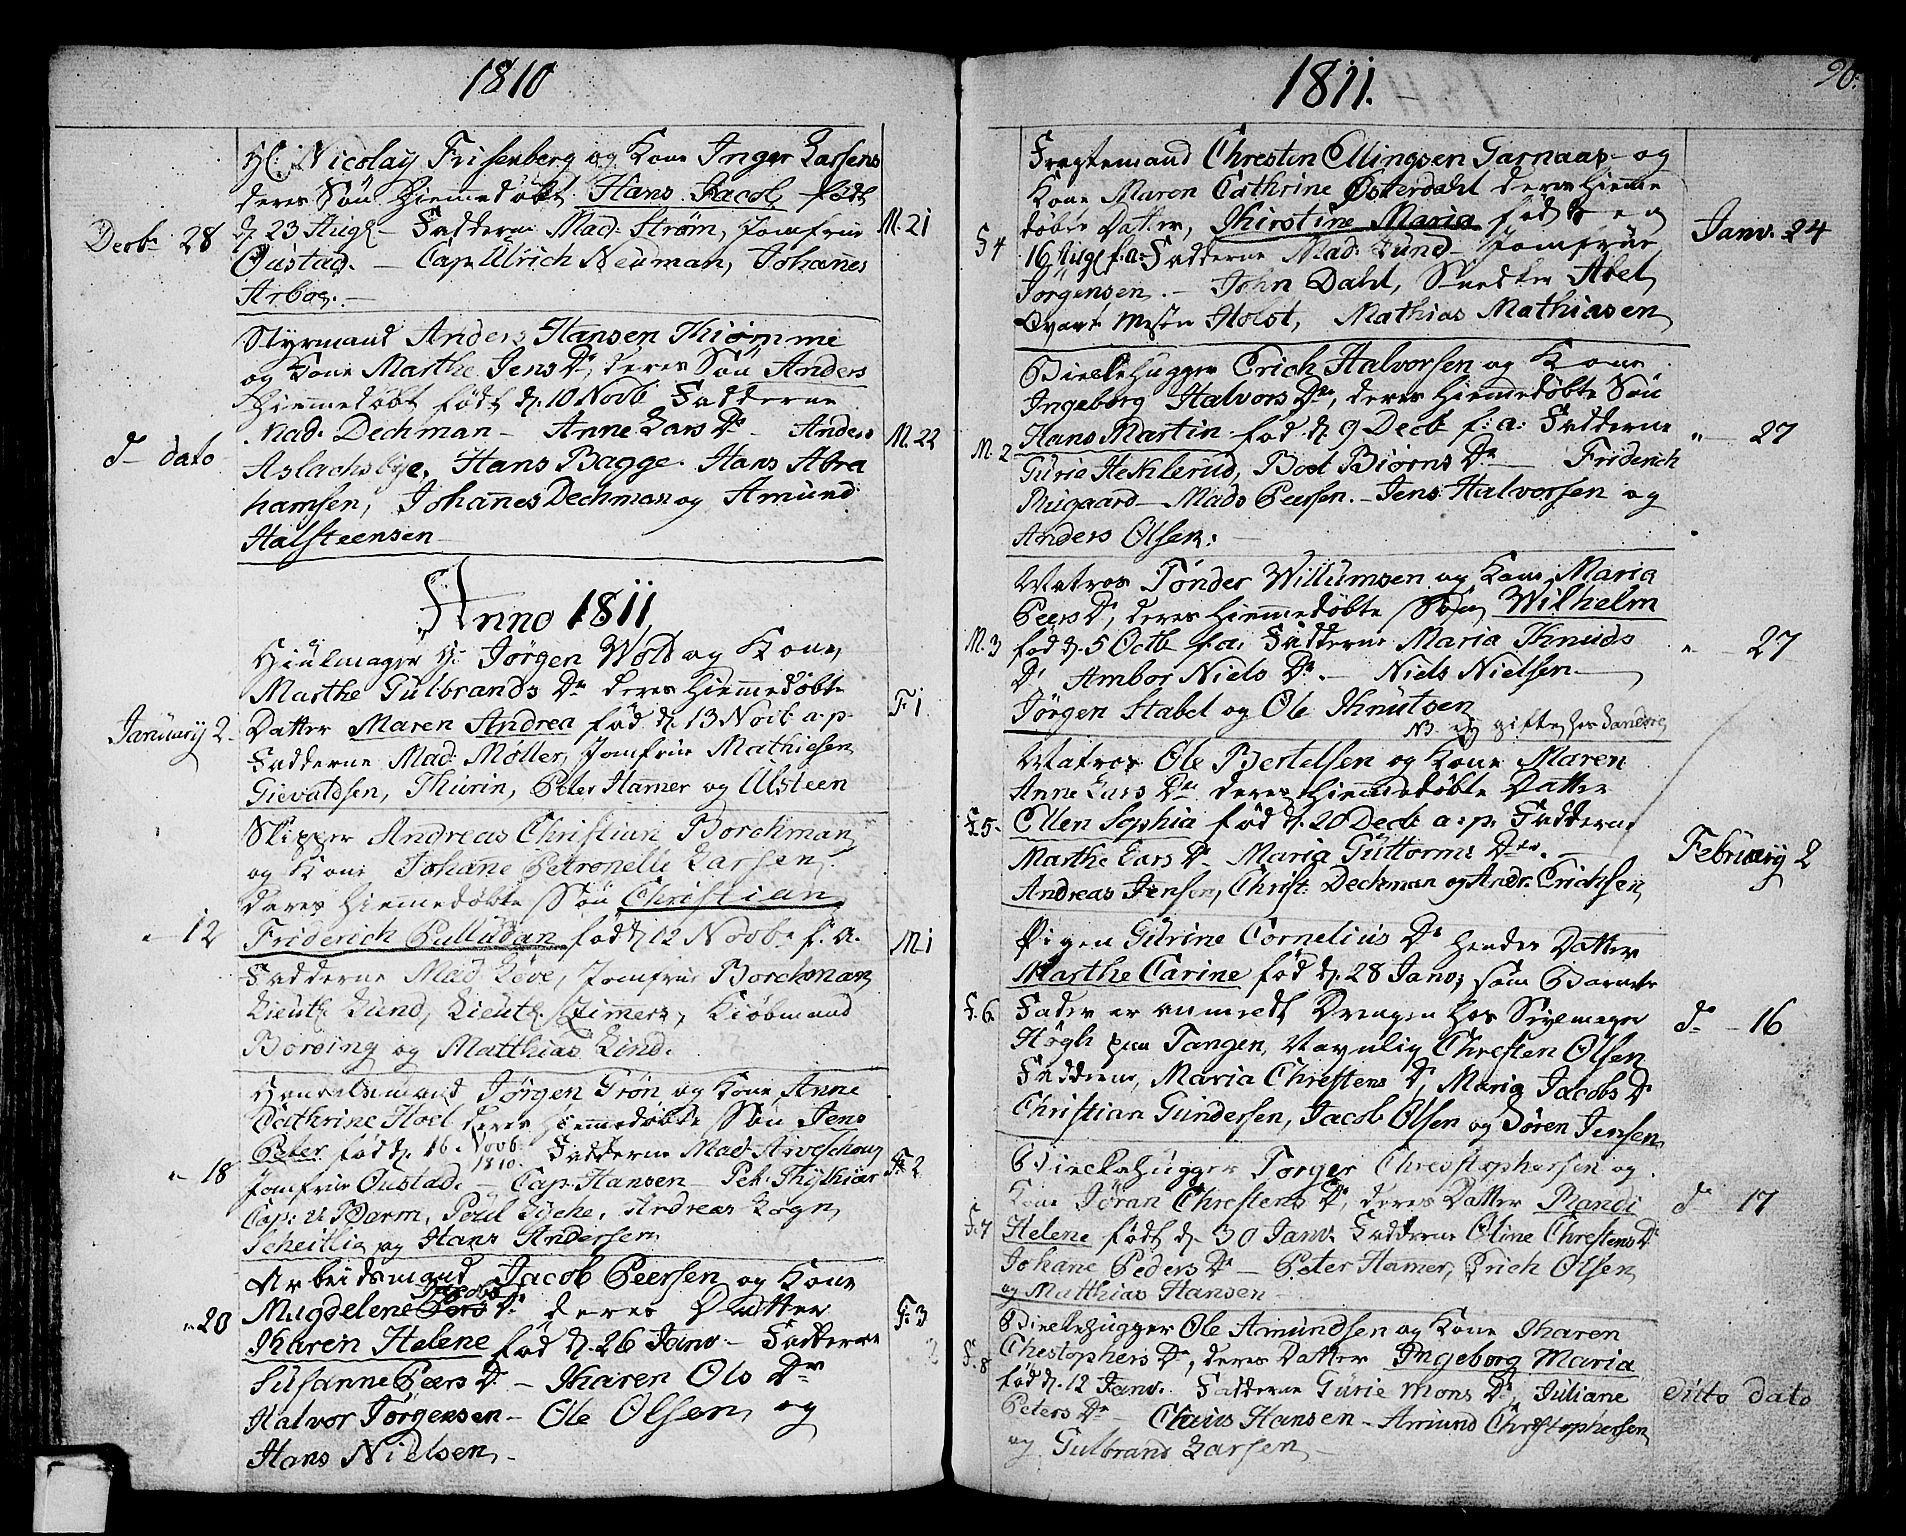 1810
Hr: Nicolay Frisenberg og Kone Inger Larsens
deres Søn Hiemmedøbt Hans Jacob født
Decbr 28 d. 23 Augt - Fadderne Mad: Strøm, Jomfrue M. 21
Oustad. - Cap: Ulrich Neuman, Johannes
Arboe. -
Styrmand Anders Hansen Kiømme
og Kone Marthe Jens Dr, deres Søn Anders
Hiemmedøbt født d. 10 Novb Fadderne
Mad: Dechman - Anne Lars Dr - Anders
do dato Aslachsbye, Hans Bagge. Hans Abra M. 22
hamsen, Johannes Dechman og Amund
Halsteensen
Anno 1811
Hiulmager Hr: Jørgen Wold og Kone,
Marthe Gulbrands Dr deres Hiemmedøbte
January 2 Datter Maren Andrea fød d. 13 Novb: a. p. F. 1
Fadderne Mad: Møller, Jomfrue Mathiesen
Gievaldsen, Thurin, Peter Hammer og Ulsteen
Skipper Andreas Christian Borchman
og Kone Johanne Petronelle Larsen,
deres Hiemmedøbte Søn Christian
" 12 Friderich Palludan fød d. 12 Novbr f. a. M. 1
Fadderne Mad Leve, Jomfrue Borchman
Lieutn Lund, Lieutn Zimmers, Kiøbmand
Borsing og Matthias Lind.
Handelsmand Jørgen Grøn og Kone Anne
Cathrine Hoel deres Hiemmedøbte Søn Jens
Peter fød d. 16 Novb: 1810. Fadderne Mad Arveschoug
" 18 Jomfrue Oustad. - Cap: Hansen - Pet: Thykiær F. 2
Cap: v Barm, Poul Lyche, Andreas Logn,
Scheitlia og Hans Andersen
Arbeidsmand Jacob Peersen og Kone
" 20 Magdelene Dr deres Datter F. 3
Karen Helene fød d. 26 Janv - Fadderne
Susanne Peers Dr - Karen Ols Dr
Halvor Jørgensen - Ole Olsen, og
Hans Nielsen, -
1811. 90:
Fragtemand Chresten Ellingsen Garnaas - og
Kone Maren Cathrine Østerdahl deres Hiemme
døbte Datter, Kirstine Maria født en
F. 4 16 Augt f. a: Fadderne Mad: Lund - Jomfrue Janv. 24
Jørgensen. - John Dahl, Snedker Abel,
Qvart Mester Holst, Mathias Mathiasen
Bielkehugger Erich Halvorsen og Kone
Ingeborg Halvors Dr, deres Hiemmedøbte Søn
M. 2 Hans Martin fød d. 9 Decb f: a: Fadderne " - 27
Gurie Heklerud, Boel Biørns Dr - Friderich
Rugaard - Mads Peersen. - Jens Halvorsen og
Anders Olsen: -
Matros Tønder Willumsen og Kone Maria
Peers Dr, deres Hiemmedøbte Søn Wilhelm
M. 3 fød d. 5 Octb f. a: Fadderne Maria Knuds " - 27
Dr Ambor Niels Dr. - Niels Nielsen -
Jørgen Stabel og Ole Knutsen
Matros Ole Bertelsen og Kone Maren
Anne Lars Dr deres Hiemmedøbte Datter
F. 5. Ellen Sophia fød d. 20 Decb a. p. Fadderne
Marthe Lars Dr - Maria Guttorms Dr. - February 2
Andreas Jensen, Christ: Dechman og Andr: Erichsen
Pigen Gurine Cornelius Dr hendes Datter
Marthe Carine fød d. 28 Janv; som Barnets
F. 6. Fader er anmeldt Drengen hos Seylmager do - 16
Høgh paa Tangen, Navnlig Chresten Olsen
Fadderne, Maria Chrestens Dr, Maria Jacobs Dr
Christian Gundersen, Jacob Olsen og Søren Jensen
Bielkehugger Torger Christophersen og
Kone Jøran Chrestens Dr, deres Datter Randi do 17
F. 7 Helene født d. 30 Janv. Fadderne Oline Chrestens Dr
Johane Peders Dr - Peter Hamer, Erich Olsen,
og Matthias Hansen -
Bielkehugger Ole Amundsen og Kone Karen
F. 8 Chestophers Dr, deres Datter Ingeborg Maria
fød d. 12 Janv. Fadderne Gurie Mons Dr, Juliane ditto dato
Peters Dr - Claus Hansen - Amund Christophersen
og Gulbrand Larsen, -